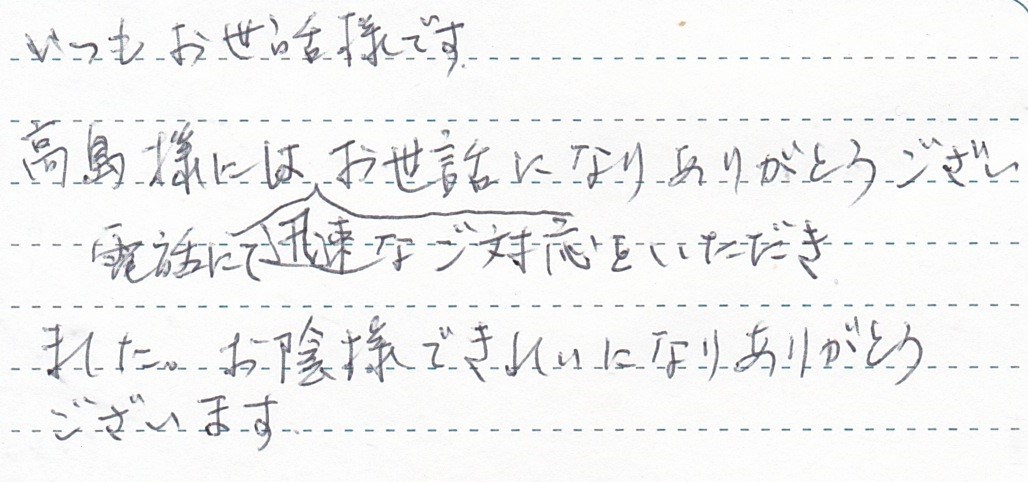 いつもお世話様です。
高島様にはお世話になりありがとうござい
電話にて迅速なご対応をいただき
ました。お陰様できれいになりありがとう
ございます。